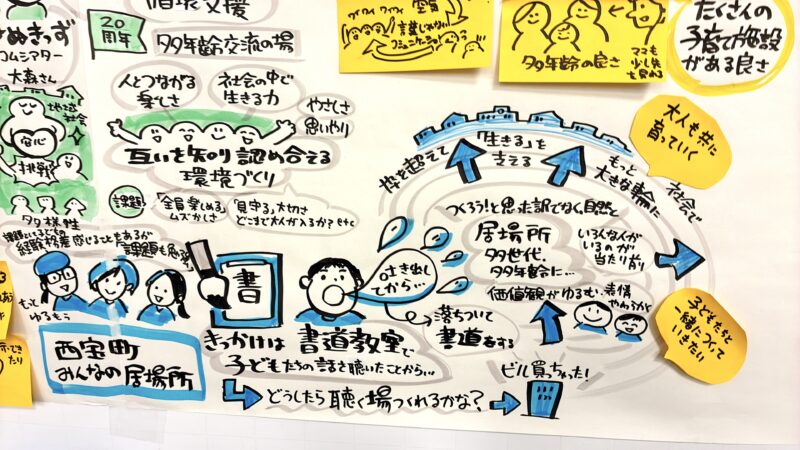 循環支援
20周年
多年齢交流の場
ぬきっず
コムシアター
大森さん
地域社会
安心
挑戦
多様性
人とつながる
楽しさ
社会の中で
生きる力
やさしさ
思いやり
互いを知り認め合える
環境づくり
課題
「全員楽しめる」
ムズかしさ
「見守る」大切さ
どこまで大人が入るか?etc
経験格差感じることもあるが
課題も
もっと
ゆるもう
西宝町
みんなの居場所
書
きっかけは書道教室で
子どもたちの話を聴いたことから…
どうしたら聴く場つくれるかな?
ビル買っちゃった!
吐き出し
てから…
落ちついて
書道をする
つくろう!と思った訳でなく自然と
居場所
多世代、
多年齢に…
いろんな人が
いるのが
当たり前
価値観がゆるむ・表情
やわらかく
枠を超えて
「生きる」を
支える
もっと
大きな輪に
社会で
ワイワイ
空気
コミュニケーション
多年齢の良さ
ママも
少し先
も見れる
たくさんの
子育て施設
がある良さ
大人も共に
育っていく
子どもたちと
一緒に
いきたい